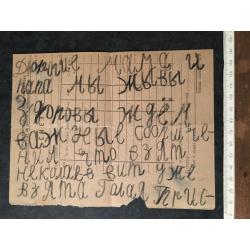 Дорогие МАМА и
папа мы живы
Здоровы ждем
важные сообщче
ния что взят
Николаев вит уже
взята Гагая прис-